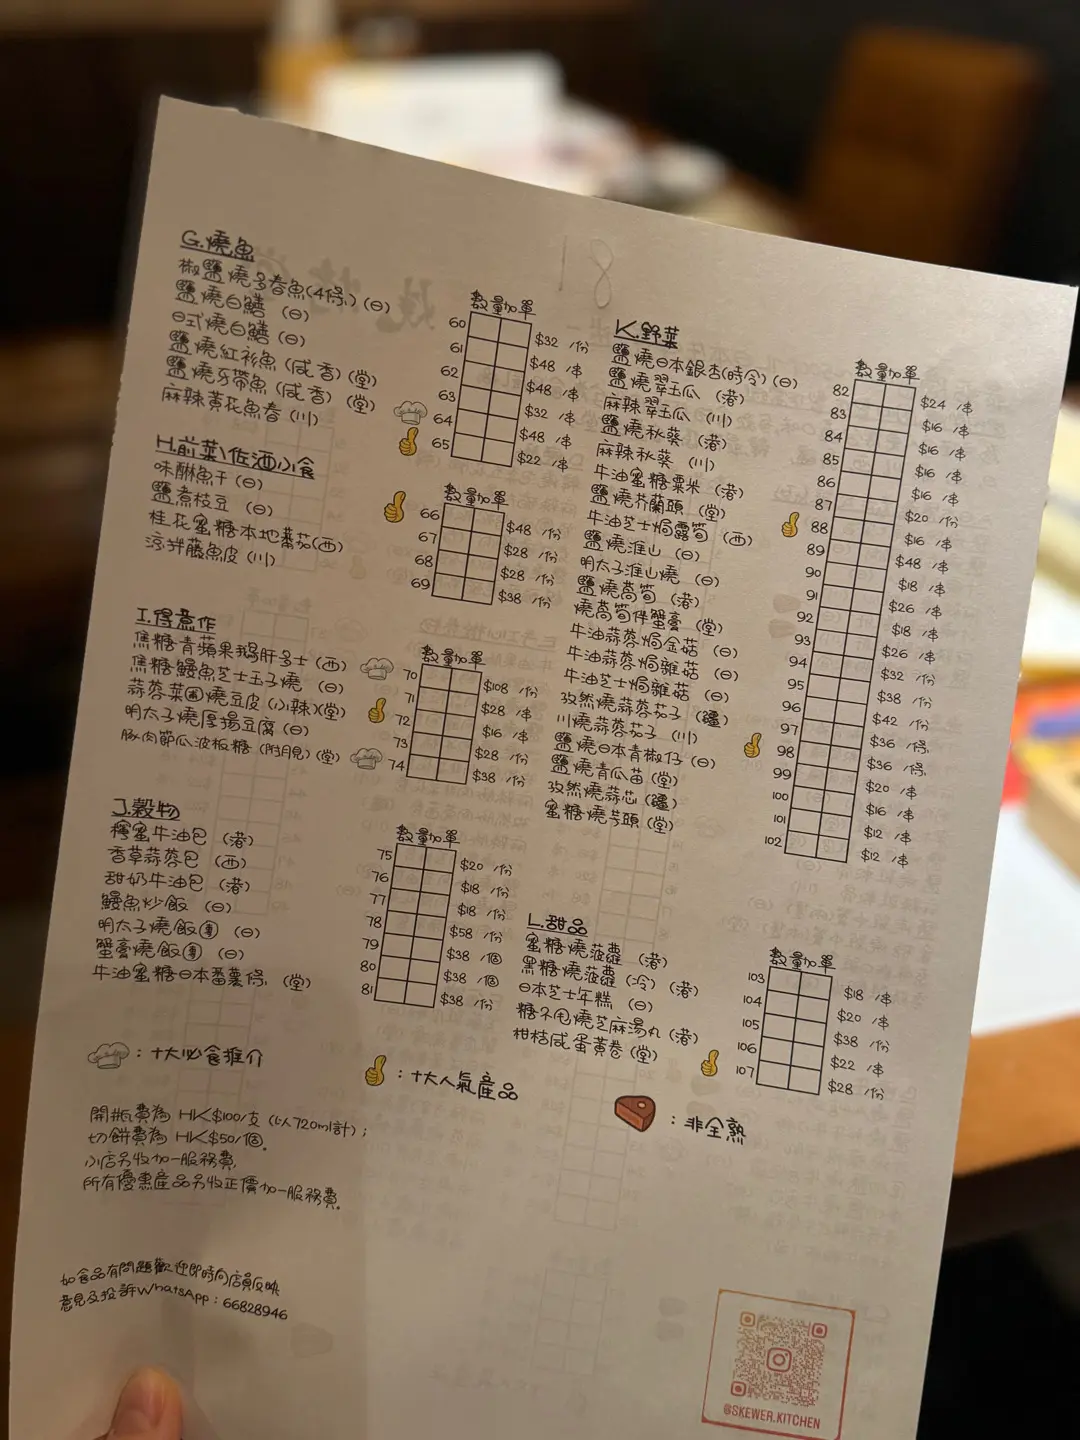 18
G.燒魚
數量加單
椒鹽燒多春魚(4條)(日) 60 $32 /份
鹽燒白鱔 (日) 61 $48 /串
日式燒白鱔 (日) 62 $48 /串
鹽燒紅衫魚 (咸香) (堂) 63 $32 /份
鹽燒牙帶魚 (咸香) (堂) 64 $48 /串
麻辣黃花魚春 (川) 65 $22 /串
H.前菜\佐酒小食
數量加單
味醂魚干 (日) 66 $48 /份
鹽煮枝豆 (日) 67 $28 /份
桂花蜜糖本地蕃茄(西) 68 $28 /串
涼拌藤魚皮 (川) 69 $38 /份
I.得意作
數量加單
焦糖青蘋果鵝肝多士 (西) 70 $108 /份
焦糖鰻魚芝士玉子燒 (日) 71 $28 /串
蒜蓉菜甫燒豆皮 (小辣)(堂) 72 $16 /串
明太子燒厚揚豆腐 (日) 73 $28 /份
豚肉節瓜波板糖 (附月見) (堂) 74 $38 /份
J.穀物
數量加單
檸蜜牛油包 (港) 75 $20 /份
香草蒜蓉包 (西) 76 $18 /份
甜奶牛油包 (港) 77 $18 /份
鰻魚炒飯 (日) 78 $58 /份
明太子燒飯團 (日) 79 $38 /個
蟹膏燒飯團 (日) 80 $38 /個
牛油蜜糖日本番薯條 (堂) 81 $38 /份
K.野菜
數量加單
鹽燒日本銀杏(時令)(日) 82 $24 /串
鹽燒翠玉瓜 (港) 83 $16 /串
麻辣翠玉瓜 (川) 84 $16 /串
鹽燒秋葵 (港) 85 $16 /串
麻辣秋葵 (川) 86 $16 /串
牛油蜜糖粟米 (港) 87 $20 /份
鹽燒芥蘭頭 (堂) 88 $16 /串
牛油芝士焗露筍 (西) 89 $48 /串
鹽燒淮山 (日) 90 $18 /串
明太子淮山燒 (日) 91 $26 /串
鹽燒萵筍 (港) 92 $18 /串
燒萵筍伴蟹膏 (堂) 93 $26 /串
牛油蒜蓉焗金菇 (日) 94 $32 /份
牛油蒜蓉焗雜菇 (日) 95 $38 /份
牛油芝士焗雜菇 (日) 96 $42 /份
孜然燒蒜蓉茄子 (疆) 97 $36 /條
川燒蒜蓉茄子 (川) 98 $36 /條
鹽燒日本青椒仔 (日) 99 $20 /串
鹽燒青瓜苗 (堂) 100 $16 /串
孜然燒蒜芯 (疆) 101 $12 /串
蜜糖燒芋頭 (堂) 102 $12 /串
L.甜品
數量加單
蜜糖燒菠蘿 (港) 103 $18 /串
黑糖燒菠蘿 (冷) (港) 104 $20 /串
日本芝士年糕 (日) 105 $38 /份
糖不甩燒芝麻湯丸 (港) 106 $22 /串
柑桔咸蛋黃卷 (堂) 107 $28 /份
：十大必食推介
：十大人氣產品
：非全熟
開瓶費為 HK$100/支 (以720ml計)；
切餅費為 HK$50/個。
小店另收加一服務費,
所有優惠產品另收正價加一服務費。
如食品有問題歡迎即時向店員反映
意見及投訴WhatsApp：66828946
@SKEWER.KITCHEN